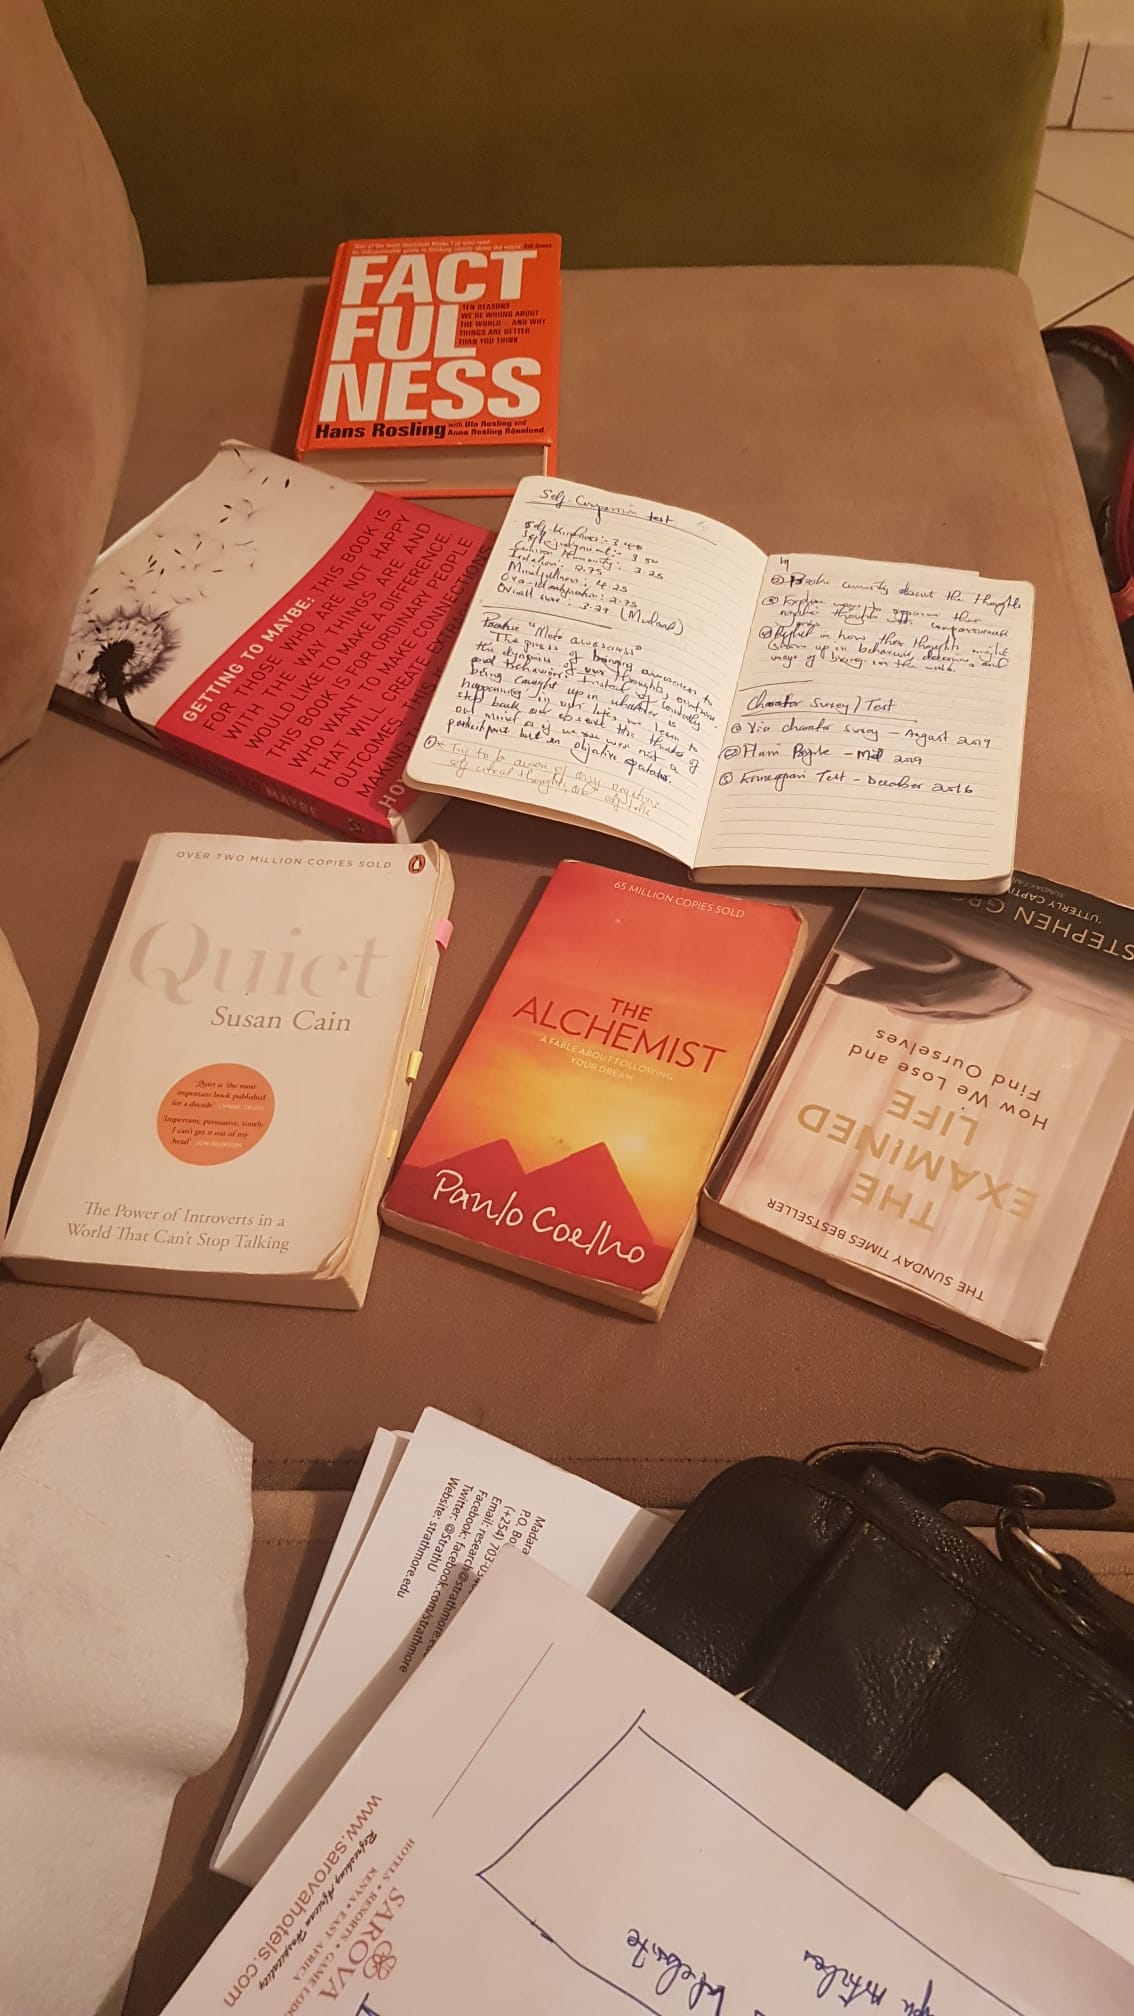 One of the most important books I've ever read
an indispensable guide to thinking clearly about the world. Bill Gates
FACT
FUL
NESS
TEN REASONS
WE'RE WRONG ABOUT
THE WORLD – AND WHY
THINGS ARE BETTER
THAN YOU THINK
Hans Rosling
with Ola Rosling and
Anna Rosling Rönnlund
GETTING TO MAYBE: THIS BOOK IS
FOR THOSE WHO ARE NOT HAPPY
WITH THE WAY THINGS ARE AND
WOULD LIKE TO MAKE A DIFFERENCE.
THIS BOOK IS FOR ORDINARY PEOPLE
WHO WANT TO MAKE CONNECTIONS
THAT WILL CREATE EXTRA
OUTCOMES. THIS
MAKING TH
HO
GETTING TO MAYBE
Self-Compassion test
Self-kindness: 3.40
Self-judgment: 3.50
Common Humanity: 3.25
Isolation: 2.75
Mindfulness: 4.25
Over-identification: 2.75
Overall score: 3.29
Practice "Meta awareness"
The process of bringing awareness to
the dynamics of our thoughts, emotions
and behaviors. Instead of constantly
being caught up in whatever is
happening in our lives, we learn to
step back and observe the theatre of
our mind as if we were not a
participant but an objective spectator.
① * Try to be aware of any negative
self critical thoughts, self talk
by
② Be curious about the thoughts
③ Explore
negative thoughts
④ Reflect in how these thoughts might
show up in behavior, decisions and
ways of being in the world.
Character Survey/Test
① Via character survey – August 2019
② Plum Profile – Mid 2019
③ Test – December 2016
OVER TWO MILLION COPIES SOLD
Quiet
Susan Cain
'Quiet is the most
important book published
for a decade' LYNNE TRUSS
'Important, persuasive, timely.
I can't get it out of my
head' JON RONSON
The Power of Introverts in a
World That Can't Stop Talking
65 MILLION COPIES SOLD
THE
ALCHEMIST
'A FABLE ABOUT FOLLOWING
YOUR DREAM
Paulo Coelho
THE SUNDAY TIMES BESTSELLER
THE
EXAMINED
LIFE
How We Lose and
Find Ourselves
STEPHEN GRO
'UTTERLY CAPTIV
SUNDAY TIM
Madara
P.O. Bo
(+254) 703-03
Email: research@strathmore.e
Facebook: facebook.com/strathmore
Twitter: @StrathU
Website: strathmore.edu
SAROVA
HOTELS • RESORTS • GAME LODG
KENYA • EAST AFRICA
Refreshing African Hospitality
www.sarovahotels.com
Website
Articles